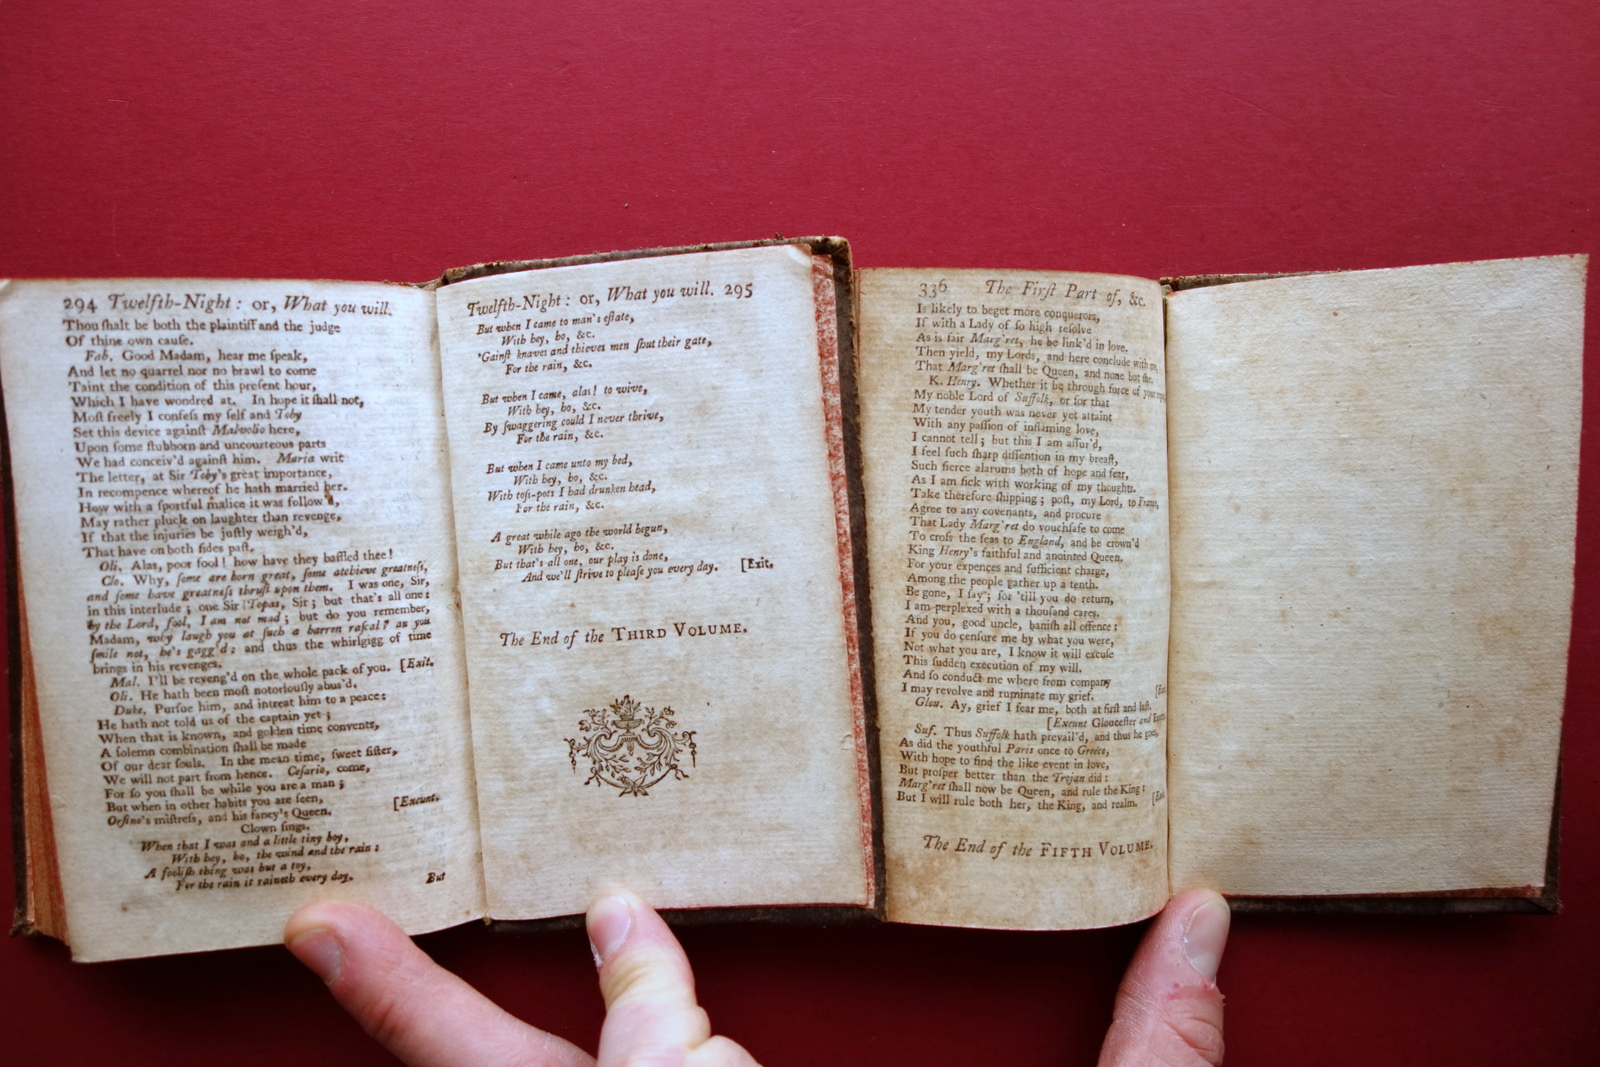 294 Twelfth-Night: or, What you will.
Thou ſhalt be both the plaintiff and the judge
Of thine own cauſe.
Fab. Good Madam, hear me ſpeak,
And let no quarrel nor no brawl to come
Taint the condition of this preſent hour,
Which I have wondred at. In hope it ſhall not,
Moſt freely I confeſs my ſelf and Toby
Set this device againſt Malvolio here,
Upon ſome ſtubborn and uncourteous parts
We had conceiv'd againſt him. Maria writ
The letter, at Sir Toby's great importance,
In recompence whereof he hath married her.
How with a ſportful malice it was follow'd,
May rather pluck on laughter than revenge,
If that the injuries be juſtly weigh'd,
That have on both ſides paſt.
Oli. Alas, poor fool! how have they baffled thee!
Clo. Why, ſome are born great, ſome atchieve greatneſs,
and ſome have greatneſs thruſt upon them. I was one, Sir,
in this interlude; one Sir Topas, Sir; but that's all one:
by the Lord, fool, I am not mad; but do you remember,
Madam, why laugh you at ſuch a barren raſcal? as you
ſmile not, he's gagg'd: and thus the whirligig of time
brings in his revenges.
Mal. I'll be reveng'd on the whole pack of you. [Exit.
Oli. He hath been moſt notoriouſly abus'd.
Duke. Purſue him, and intreat him to a peace:
He hath not told us of the captain yet;
When that is known, and golden time convents,
A ſolemn combination ſhall be made
Of our dear ſouls. In the mean time, ſweet ſiſter,
We will not part from hence. Ceſario, come,
For ſo you ſhall be while you are a man;
But when in other habits you are ſeen,
Orſino's miſtreſs, and his fancy's Queen. [Exeunt.
Clown ſings.
When that I was and a little tiny boy,
With hey, ho, the wind and the rain:
A fooliſh thing was but a toy,
For the rain it raineth every day.
But
Twelfth-Night: or, What you will. 295
But when I came to man's eſtate,
With hey, ho, &c.
'Gainſt knaves and thieves men ſhut their gate,
For the rain, &c.
But when I came, alas! to wive,
With hey, ho, &c.
By ſwaggering could I never thrive,
For the rain, &c.
But when I came unto my bed,
With hey, ho, &c.
With toſs-pots I had drunken head,
For the rain, &c.
A great while ago the world begun,
With hey, ho, &c.
But that's all one, our play is done,
And we'll ſtrive to pleaſe you every day. [Exit.
The End of the THIRD VOLUME.
336 The Firſt Part of, &c.
Is likely to beget more conquerors,
If with a Lady of ſo high reſolve
As is fair Marg'ret, he be link'd in love.
Then yield, my Lords, and here conclude with me,
That Marg'ret ſhall be Queen, and none but ſhe.
K. Henry. Whether it be through force of your
My noble Lord of Suffolk, or for that
My tender youth was never yet attaint
With any paſſion of inflaming love,
I cannot tell; but this I am aſſur'd,
I feel ſuch ſharp diſſention in my breaſt,
Such fierce alarums both of hope and fear,
As I am ſick with working of my thoughts.
Take therefore ſhipping; poſt, my Lord, to France,
Agree to any covenants, and procure
That Lady Marg'ret do vouchſafe to come
To croſs the ſeas to England, and be crown'd
King Henry's faithful and anointed Queen.
For your expences and ſufficient charge,
Among the people gather up a tenth.
Be gone, I ſay; for 'till you do return,
I am perplexed with a thouſand cares.
And you, good uncle, baniſh all offence:
If you do cenſure me by what you were,
Not what you are, I know it will excuſe
This ſudden execution of my will.
And ſo conduct me where from company
I may revolve and ruminate my grief.
Glou. Ay, grief I fear me, both at firſt and laſt.
[Exeunt Glouceſter and
Suf. Thus Suffolk hath prevail'd, and thus he goes,
As did the youthful Paris once to Greece,
With hope to find the like event in love,
But proſper better than the Trojan did:
Marg'ret ſhall now be Queen, and rule the King:
But I will rule both her, the King, and realm.
The End of the FIFTH VOLUME.